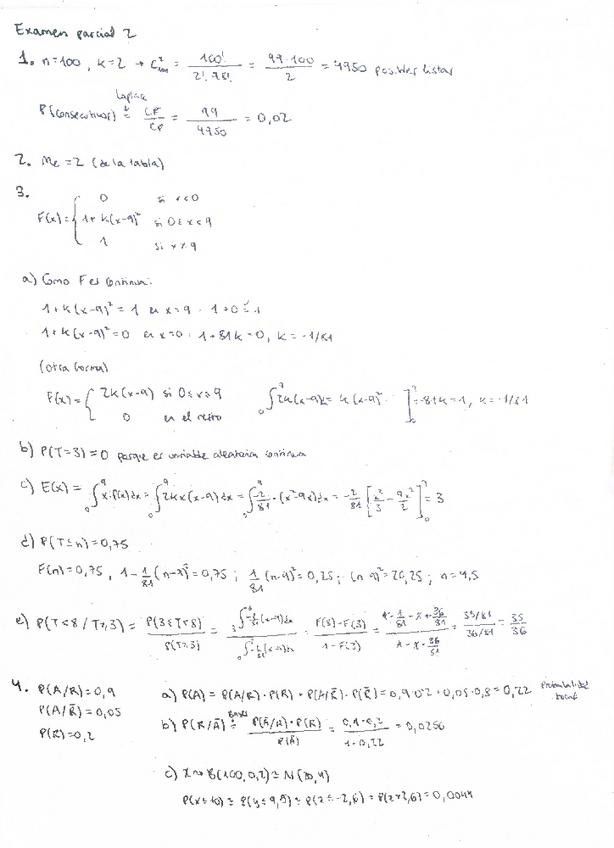 Examen parcial 2
1. n=100, k=2 → C²₁₀₀ = 100! / 2! 98! = 99·100 / 2 = 4950 posibles listas
Laplace
P(consecutivas) = CF/CP = 99/4950 = 0,02
2. Me=2 (de la tabla)
3.
F(x) = { 0 si x<0
1+k(x-9)² si 0≤x<9
1 si x≥9
a) Como F es continua:
1+k(x-9)² = 1 en x=9 · 1+0 = 1
1+k(x-9)² = 0 en x=0 · 1+81k=0, k=-1/81
(otra forma)
F(x) = { 2k(x-9) si 0≤x≤9 ∫₀⁹ 2k(x-9)k = k(x-9)² ]₀⁹ = -81k=1, k=-1/81
0 en el resto
b) P(T=3)=0 porque es variable aleatoria continua
c) E(x) = ∫₀⁹ x·f(x)dx = ∫₀⁹ 2kx(x-9)dx = ∫₀⁹ -2/81 · (x²-9x)dx = -2/81 [x³/3 - 9x²/2]₀⁹ = 3
d) P(T≤n)=0,75
F(n)=0,75, 1-1/81(n-9)²=0,75; 1/81(n-9)²=0,25; (n-9)²=20,25; n=4,5
e) P(T<8 / T≥3) = P(3≤T<8) / P(T≥3) = F(8)-F(3) / 1-F(3) = 35/81 / 36/81 = 35/36
4. P(A/R)=0,9 a) P(A) = P(A/R)·P(R) + P(A/R̄)·P(R̄) = 0,9·0,2 + 0,05·0,8 = 0,22 Probabilidad total
P(A/R̄)=0,05
Bayes
P(R)=0,2 b) P(R/Ā) = P(Ā/R)·P(R) / P(Ā) = 0,1·0,2 / 1-0,22 = 0,0256
c) X→B(100,0,2) ≈ N(20,4)
P(x≤10) ≈ P(y≤9,5) = P(z≤-2,6) = P(z>2,6) = 0,0044